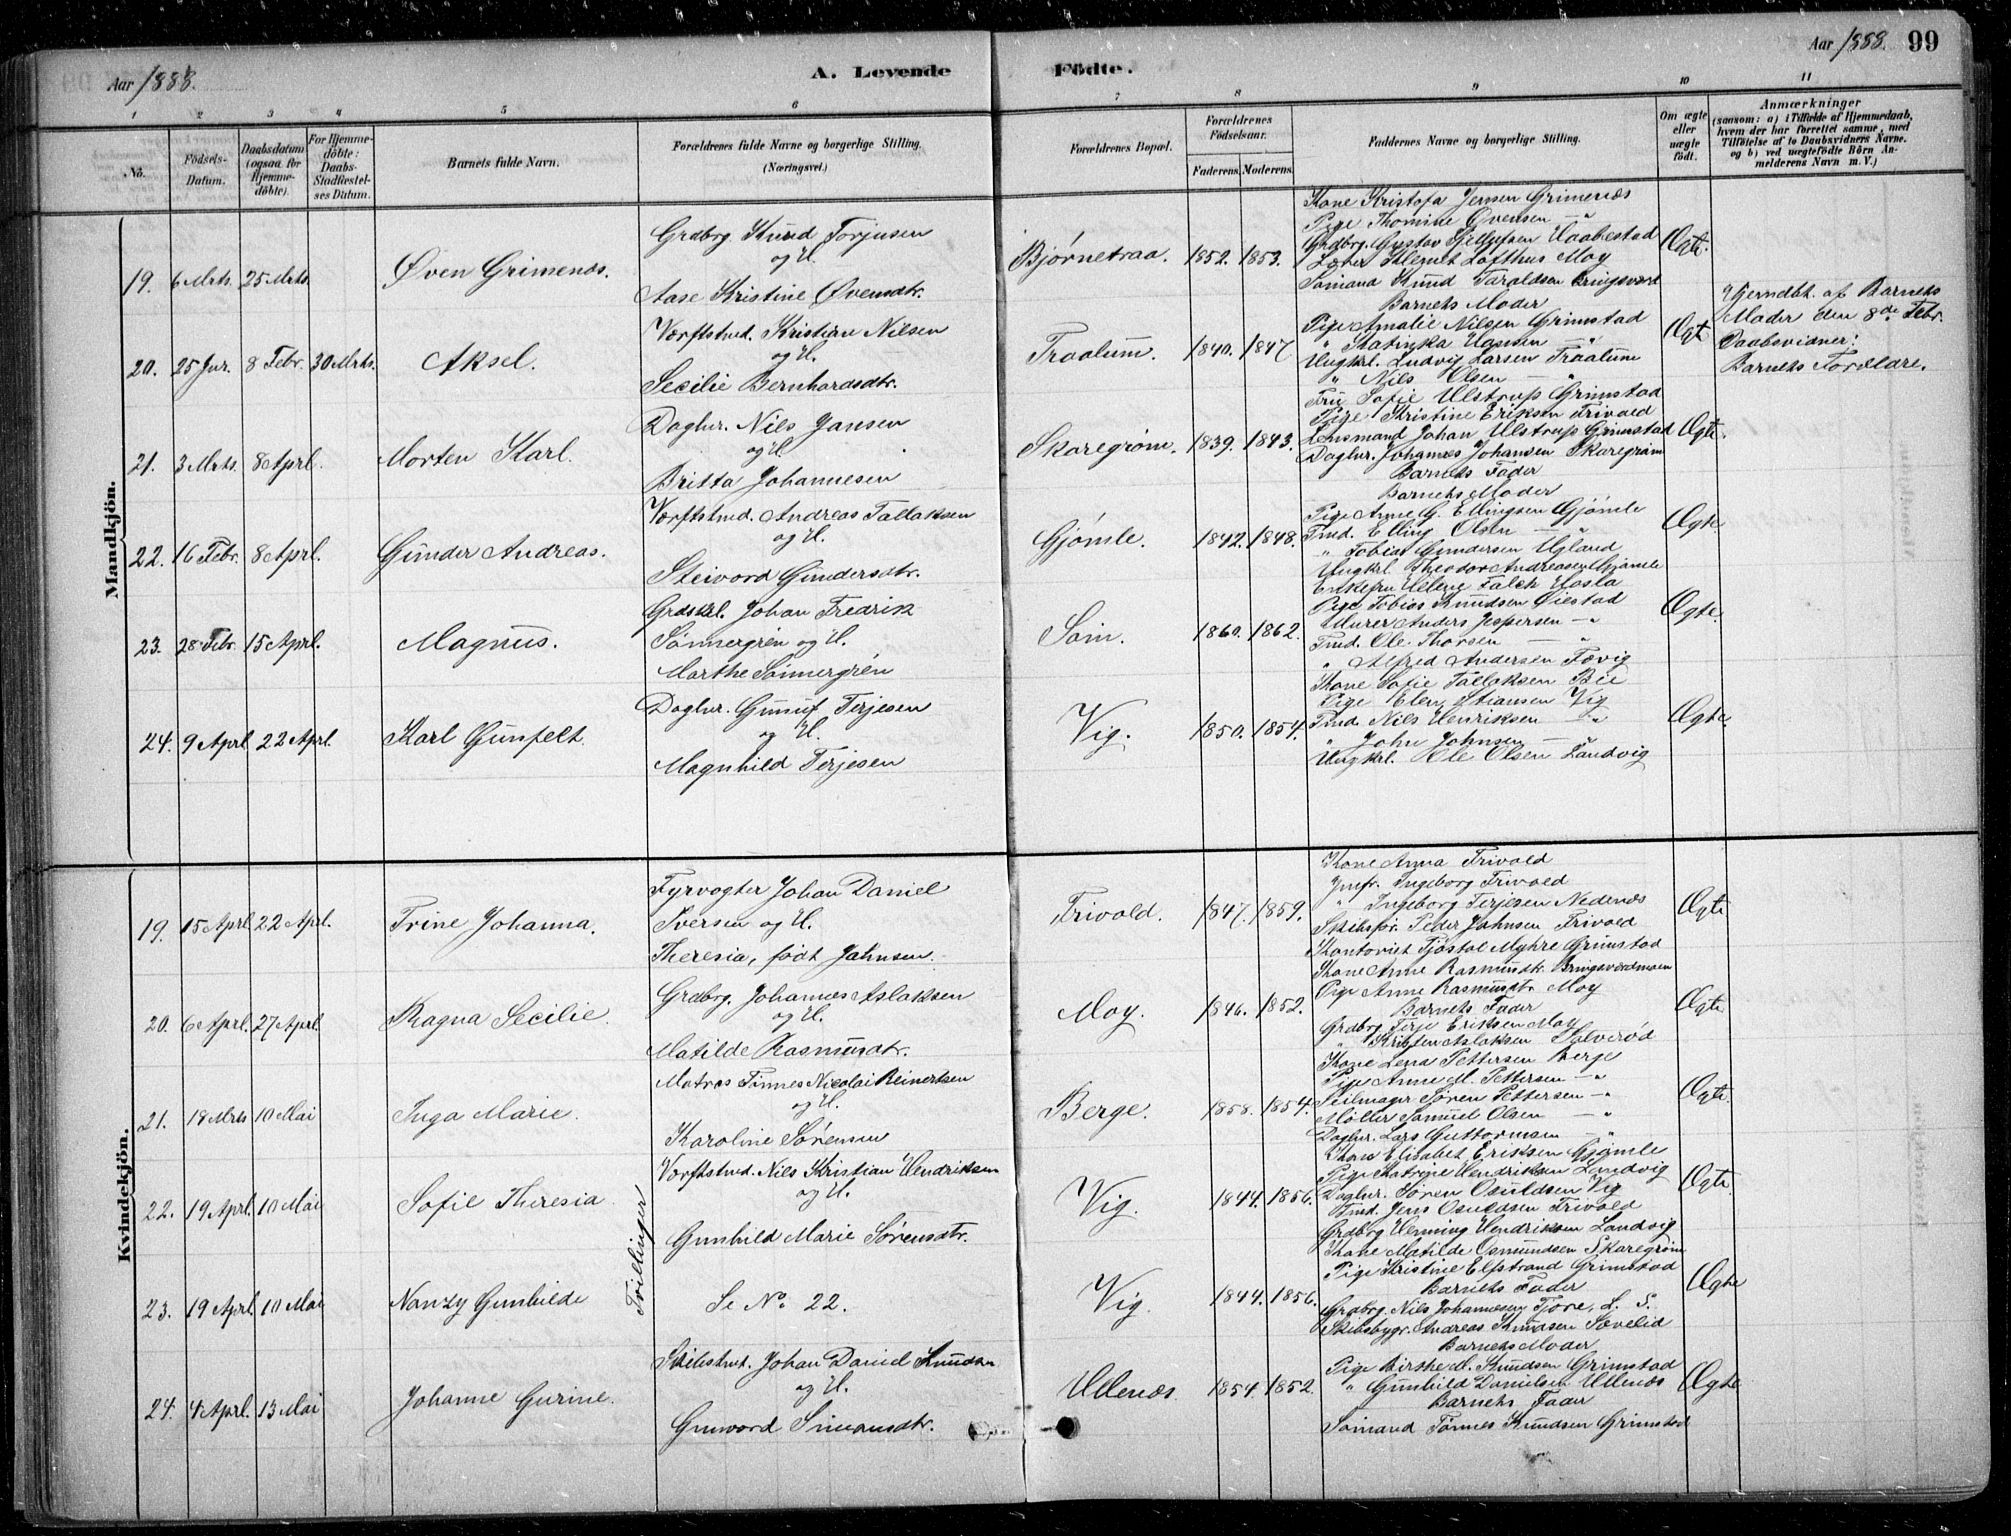 Aar 1888.
A. Levende
Födte.
Aar 1888. 99
1 2 3 4 5 6 7 8 9 10 11
No.
Födsels-Datum.
Daabsdatum (ogsaa for Hjemme-döbte).
For Hjemme-döbte: Daabs-Stadfæstel-ses Datum.
Barnets fulde Navn.
Forældrenes fulde Navne og borgerlige Stilling. (Næringsvei.)
Forældrenes Bopæl.
Forældrenes Födselsaar.
Faderens. Moderens.
Faddernes Navne og borgerlige Stilling.
Om ægte eller uægte födt.
Anmærkninger
(saasom: a) i Tilfælde af Hjemmedaab, hvem der har forrettet samme, med Tilföielse af to Daabsvidners Navne. og b) ved uægtefödte Börn An-melderens Navn m. V.)
Mandkjön.
19. 6 Mrts. 25 Mrts. Øven Grimenæs.
Grdbrg. Knud Torjusen
og H.
Aase Kristine Øvensdtr.
Bjørnetraa. 1852. 1853.
Kone Kristofa Jensen Grimenæs
Pige Thomine Øvensen — "
Grdbrg. Gustav Kjellufsen Haabestad
Lærer Klemet Lofthus Moy
Sømand Knud Taraldsen Bringsværd
Barnets Moder
Ægte.
20. 25 Jnr. 8 Febr. 30 Mrts. Aksel.
Værftstmd. Kristian Nilsen
og H.
Secilie Bernhardsdtr.
Traalum. 1840. 1847
Pige Amalie Nilsen Grimstad
" Katinka Hansen — "
Ungkrl. Ludvig Larsen Traalum
" Nils Olsen — "
Ægte
Hjemdbt. af Barnets
Moder den 8de Febr.
Daabsvidner:
Barnets Forældre.
21. 3 Mrts. 8 Aprl. Morten Karl.
Daglnr. Nils Jansen
og H.
Britta Johannesen
Skaregrøm. 1839. 1843.
Fru Sofie Ulstrup Grimstad
Pige Kristine Eriksen Frivold
Lensmand Johan Ulstrup Grimstad
Daglnr. Johannes Johansen Skaregrøm
Barnets Fader
Barnets Moder
Ægte.
22. 16 Febr. 8 Aprl. Gunder Andreas.
Værftstmd. Andreas Tallaksen
og H.
Steivord Gundersdtr.
Gjømle. 1842. 1848.
Pige Anne G. Ellingsen Gjømle
Tmd. Elling Olsen — "
" Tobias Gundersen Ugland
Ungkrl. Theodor Andreasen Gjømle
Ægte
23. 28 Febr. 15 Aprl. Magnus.
Grdskrl. Johan Fredrik
Sønnergrén og H.
Marthe Sønnergrén
Søm. 1860. 1862.
Enkefru Helene Falch Hasla
Pige Tobias Knudsen Øiestad
Murer Anders Jespersen — "
Tmd. Ole Thorsen — "
" Alfred Andersen Fævig
Ægte.
24. 9 Aprl. 22 Aprl. Karl Gunfelt.
Daglnr. Gunuf Terjesen
og H.
Magnhild Terjesen
Vig. 1850. 1854.
Kone Sofie Tallaksen Bie
Pige Elen Stiansen Vig
Tmd. Nils Henriksen — "
" John Johnsen — "
Ungkrl. Ole Olsen Landvig
Ægte
Kvindekjön.
19. 15 Aprl. 22 Aprl. Trine Johanna.
Fyrvogter Johan Daniel
Iversen og H.
Theresia, født Jahnsen.
Frivold. 1847. 1859.
Kone Anna Frivold
Jmfr. Ingeborg Frivold
" Ingeborg Terjesen Nedenæs
Skibsfør. Peder Jahnsen Frivold
Kontorist Tjøstol Myhre Grimstad
Ægte
20. 6 Aprl. 27 Aprl. Ragna Secilie.
Grdbrg. Johannes Aslaksen
og H.
Matilde Rasmusdtr.
Moy. 1846. 1852.
Kone Anne Rasmusdtr. Bringsværdmoen
Pige Anne Rasmusdtr. Moy
Barnets Fader
Grdbrg Terje Eriksen Moy
" Kristen Aslaksen Salverød
Ægte
21. 18 Mrts 10 Mai Inga Marie.
Matros Tinnes Nicolai Reinertsen
og H.
Karoline Sørensen
Berge. 1858. 1854.
Kone Lena Pettersen Berge
Pige Anne M. Pettersen — "
Seilmager Søren Pettersen — "
Møller Samuel Olsen — "
Daglnr. Lars Guttormsen — "
Ægte.
22. 19 Aprl. 10 Mai Sofie Theresia
Tvillinger
Værftstmd. Niels Kristian Hendriksen
og H.
Gunhild Marie Sørensdtr.
Vig. 1844. 1856.
Kone Elisabet Eriksen Gjømle
Pige Katrine Hendriksen Landvig
Daglnr. Søren Osuldsen Vig
Tmd. Jens Osuldsen Frivold
Grdbrg Henning Hendriksen Landvig
Ægte
23. 19 Aprl. 10 Mai Nanzy Gunhilde
Se No 22.
Vig. 1844. 1856.
Kone Matilde Osmundsen Skaregrøm
Pige Kristine Elfstrand Grimstad
Barnets Fader
Grdbrg. Nils Johannesen Tjore, L. S.
Skibsbygr. Andreas Knudsen Sævelid
Ægte
24. 4 Aprl. 13 Mai Johanne Gurine.
Skibstmd. Johan Daniel Knudsen
og H.
Gunvord Simonsdtr.
Ullenæs 1854. 1852.
Barnets Moder
Pige Birthe M. Knudsen Grimstad
" Gunhild Danielsen Ullenæs
Barnets Fader
Sømand Tønnes Knudsen Grimstad
Ægte